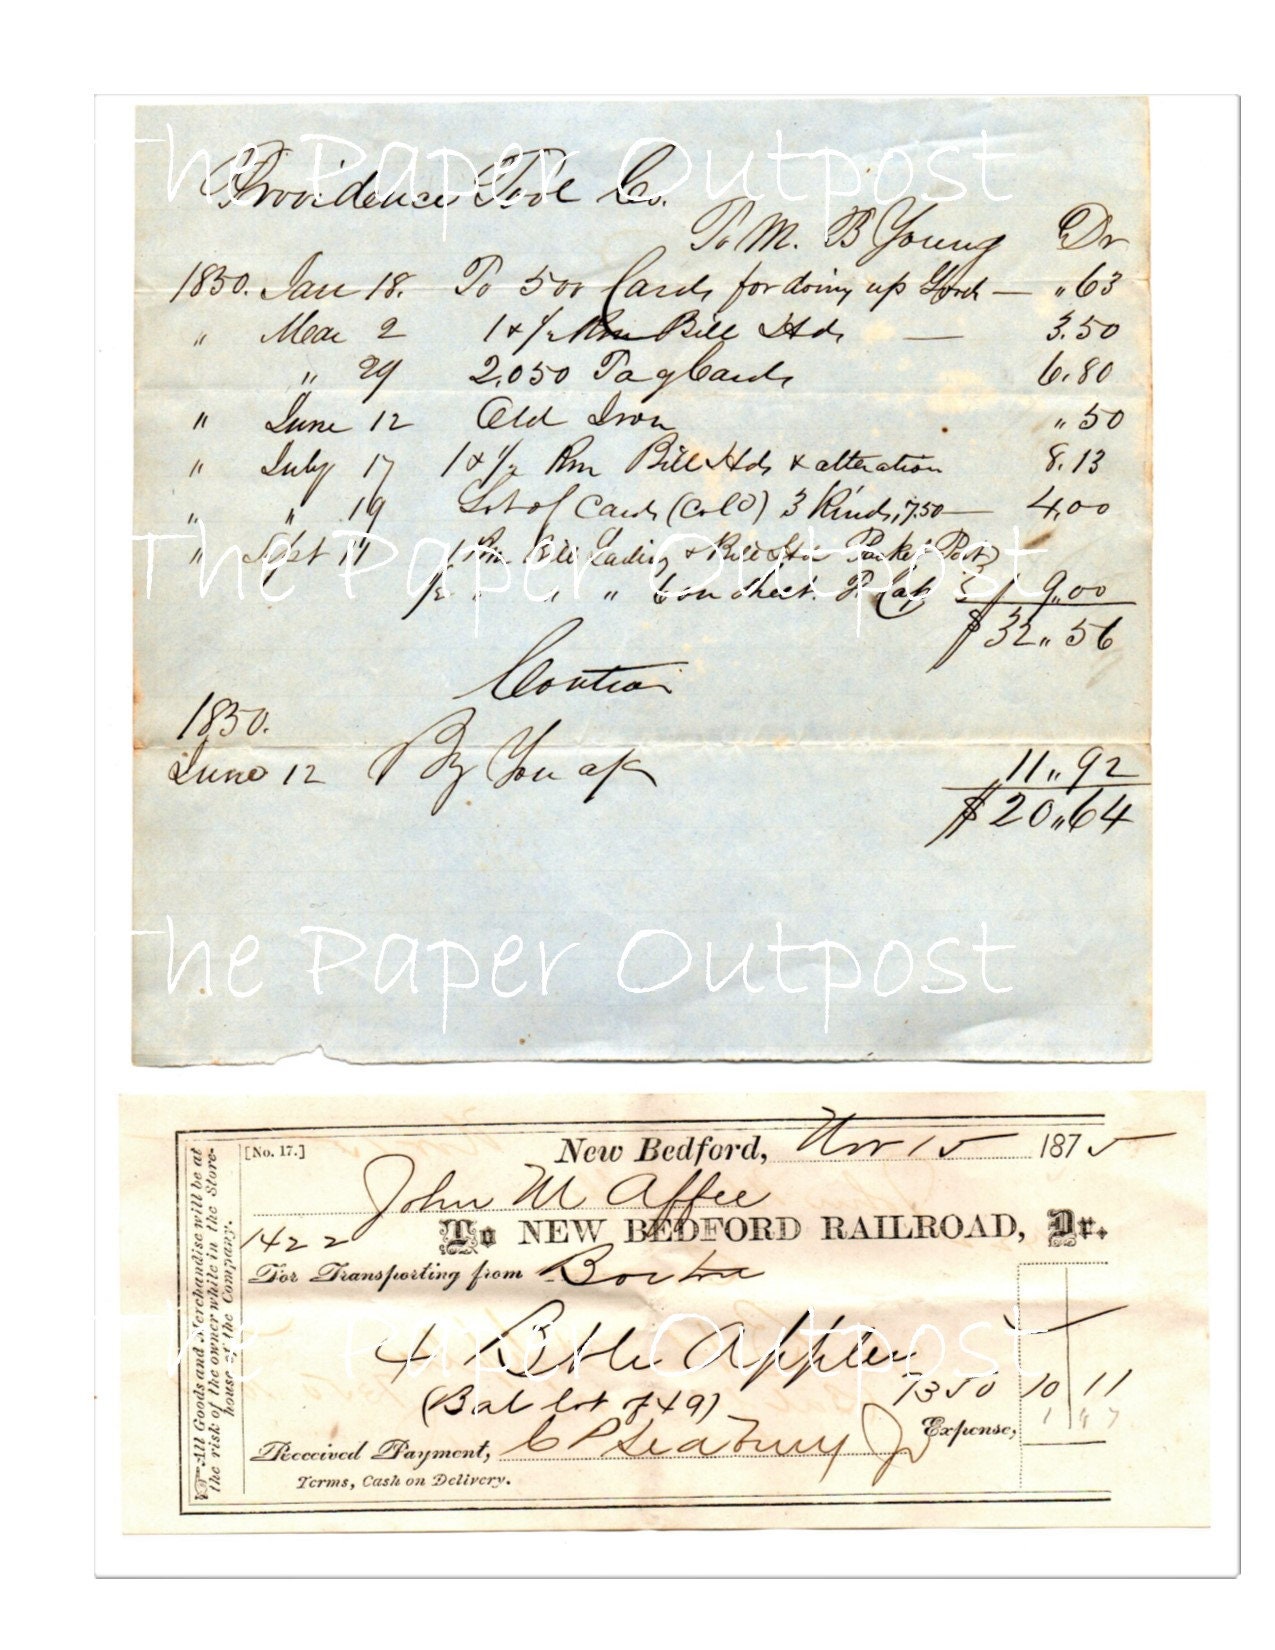 The Paper Outpost
Providence Tool Co.
To M. B Young Dr
1850. Jan 18. To 500 Cards for doing up — " 63
" Mar 2 1 & 1/2 Rm Bill Hds — 3.50
" 29 2,050 Tag Cards 6.80
" June 12 Old Iron " 50
" July 17 1 & 1/2 Rm Bill Hds & alteration 8.13
" " 19 Lot of Cards (Col'd) 3 Kinds, 7.50 — 4,00
The Paper Outpost
" Sept 11 1 Rm Bill Lading & Bill Packet Post
1/2 " " " P. Cap 9.00
$32,,56
Contra
1850.
June 12 By 11,,92
$20,,64
The Paper Outpost
All Goods and Merchandise will be at
the risk of the owner while in the Store-
house of the Company.
[No. 17.] New Bedford, Nov 15 1875
John M Affee
1422 To NEW BEDFORD RAILROAD, Dr.
For Transporting from Boston
The Paper Outpost
4 Bbls Apples
1350 10 11
(Bal lot of 49)
Expense,
Received Payment, C P Seabury Jr
Terms, Cash on Delivery.